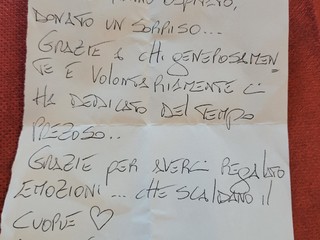 DONATO UN SORRISO...
GRAZIE A CHI GENEROSAMEN
TE E VOLONTARIAMENTE CI
HA DEDICATO DEL TEMPO
PREZOSO..
GRAZIE PER AVERCI REGALATO
EMOZIONI... CHE SCALDANO IL
CUORE ♡